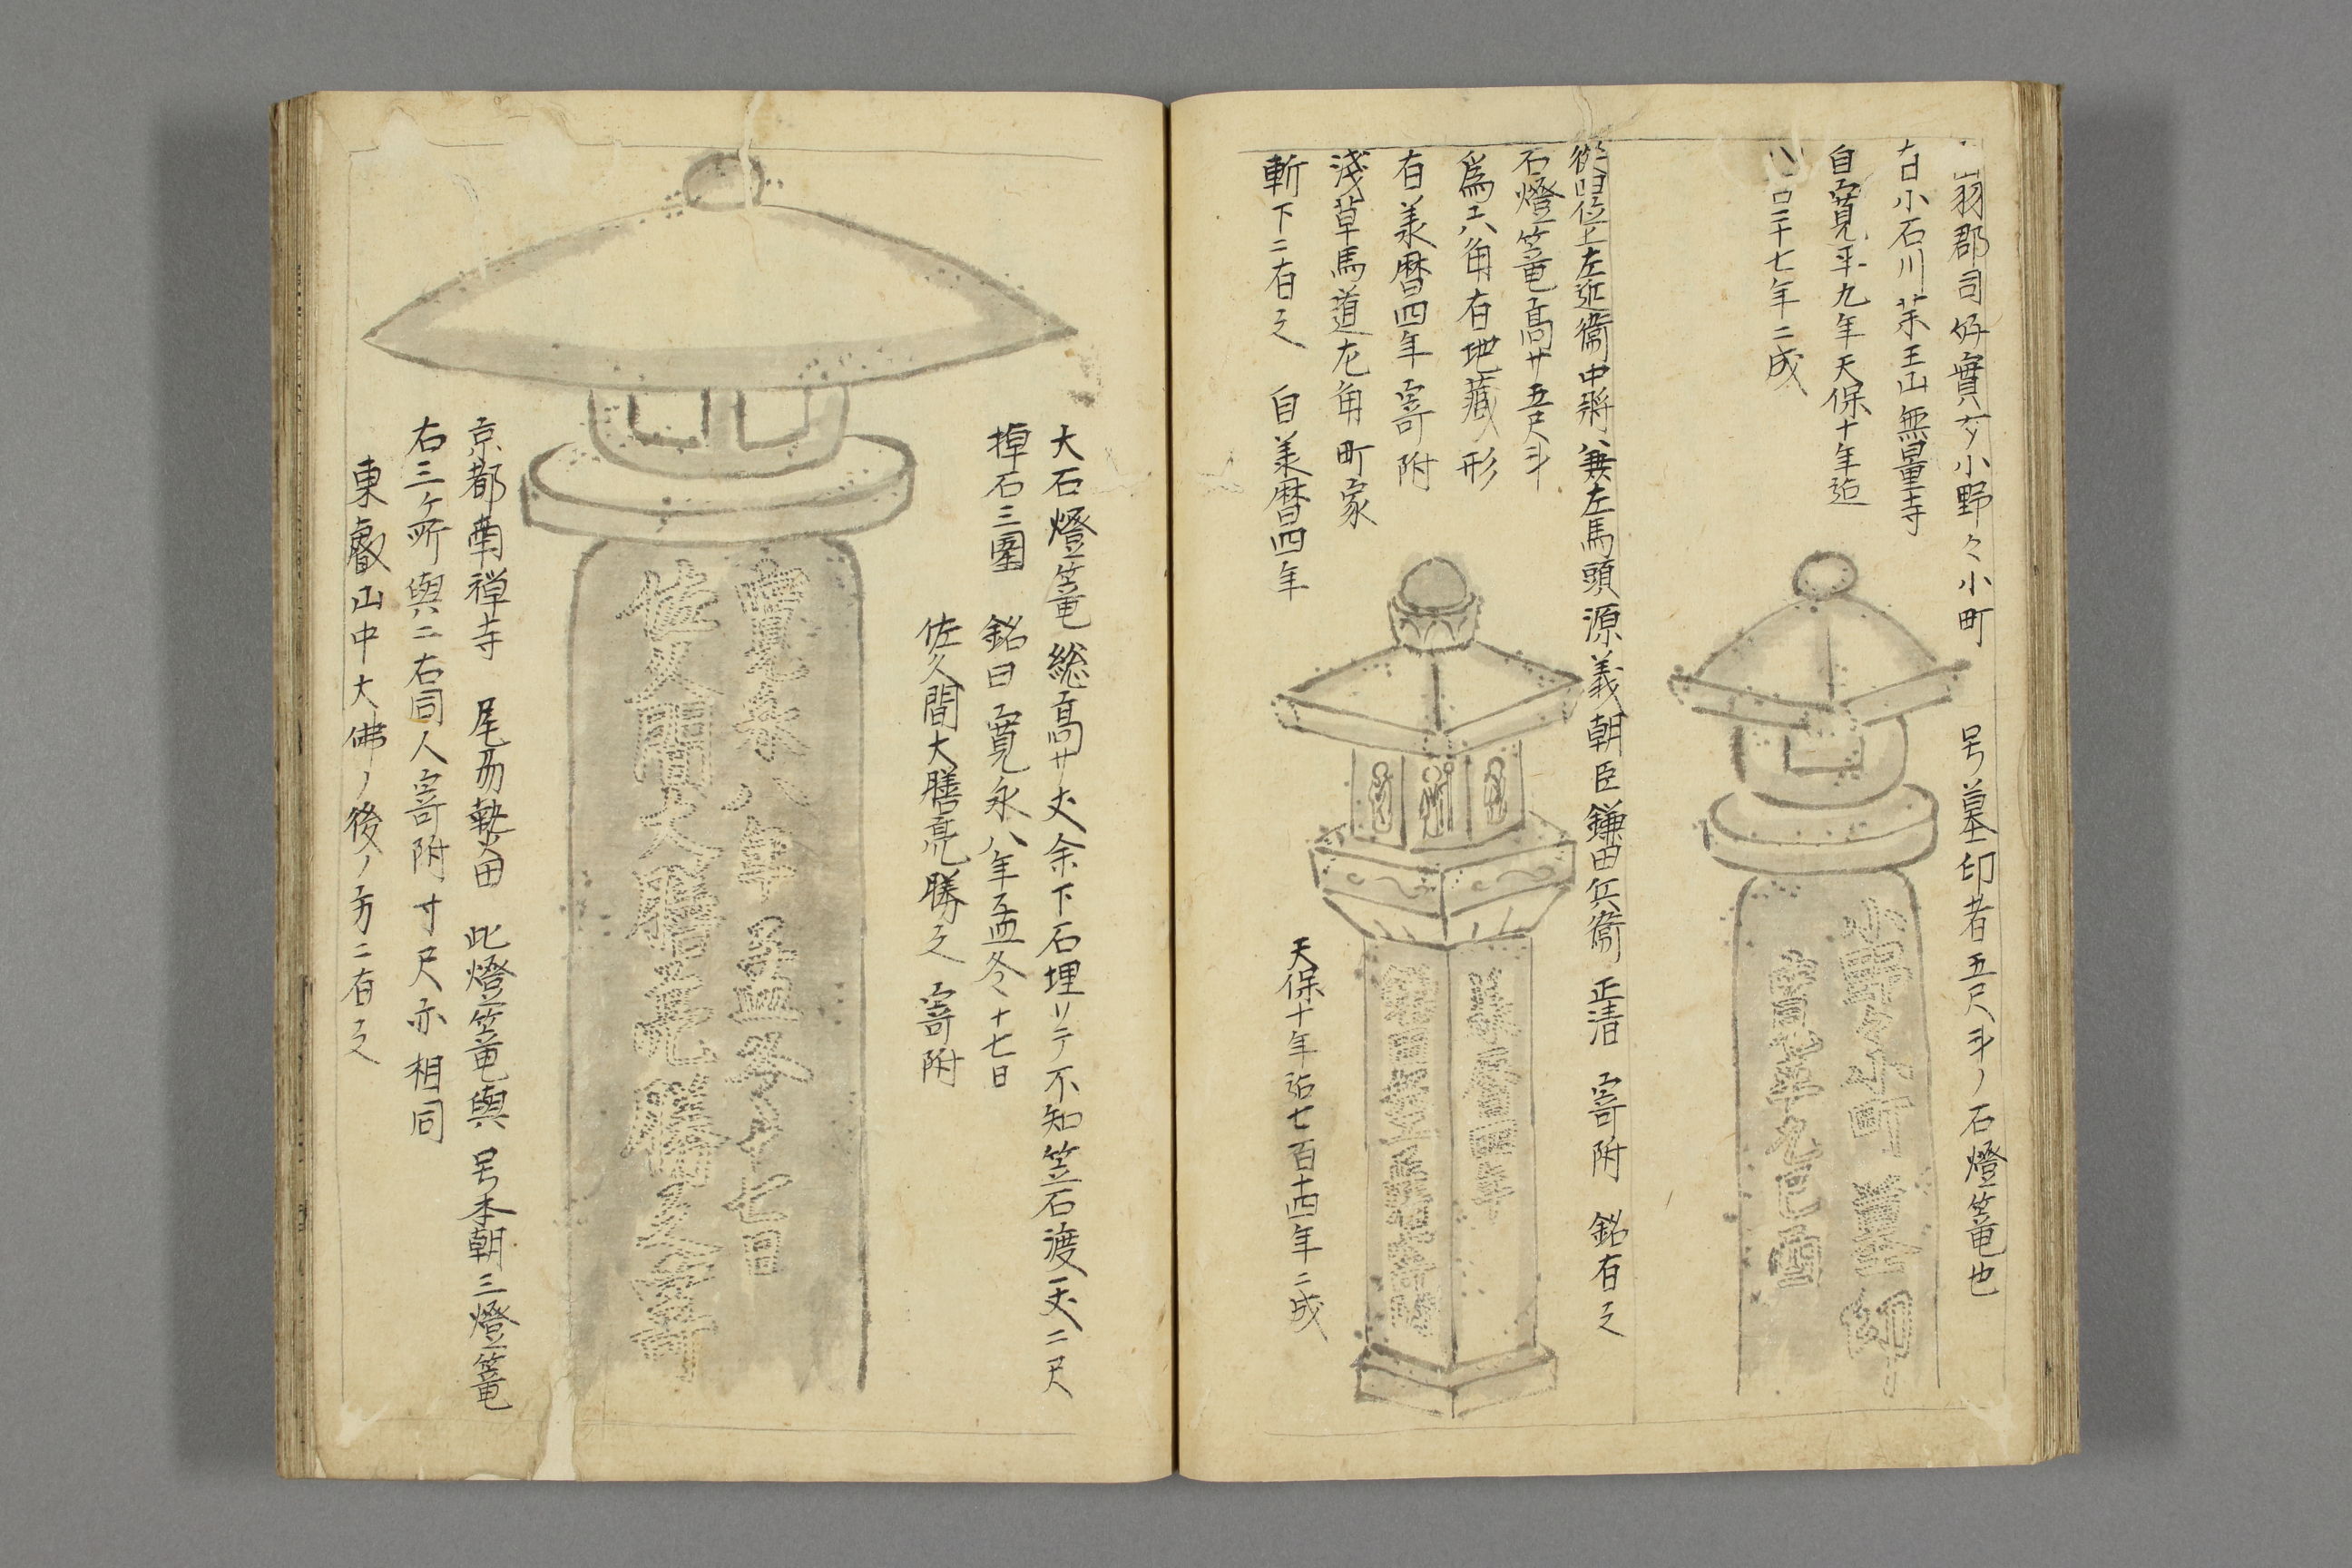 羽郡司好實女小野々小町 号墓印者五尺斗ノ石燈篭也
小石川茶王山無量寺
自寛平九年天保十年迠
二十七年ニ成
小野々小町 墓印
寛平九巳酉
從四位上左近衞中將兼左馬頭源義朝臣鎌田兵衞 正清 寄附 銘有之
石燈篭高サ五尺斗
爲六角有地藏形
有養暦四年寄附
淺草馬道尨角町家
斬下ニ有之 自養暦四年
天保十年迠七百十四年ニ成
大石燈篭 総高サ丈余下石埋リテ不知笠石渡一丈二尺
掉石三圍 銘曰寛永八年孟冬十七日
佐久間大膳亮勝之 寄附
寛永八年孟冬十七日
佐久間大膳亮勝之寄
京都南禅寺 尾刕𤍠田 此燈篭與 号本朝三燈篭
右三ケ所與ニ右同人寄附寸尺亦相同
東叡山中大佛ノ後ノ方ニ有之